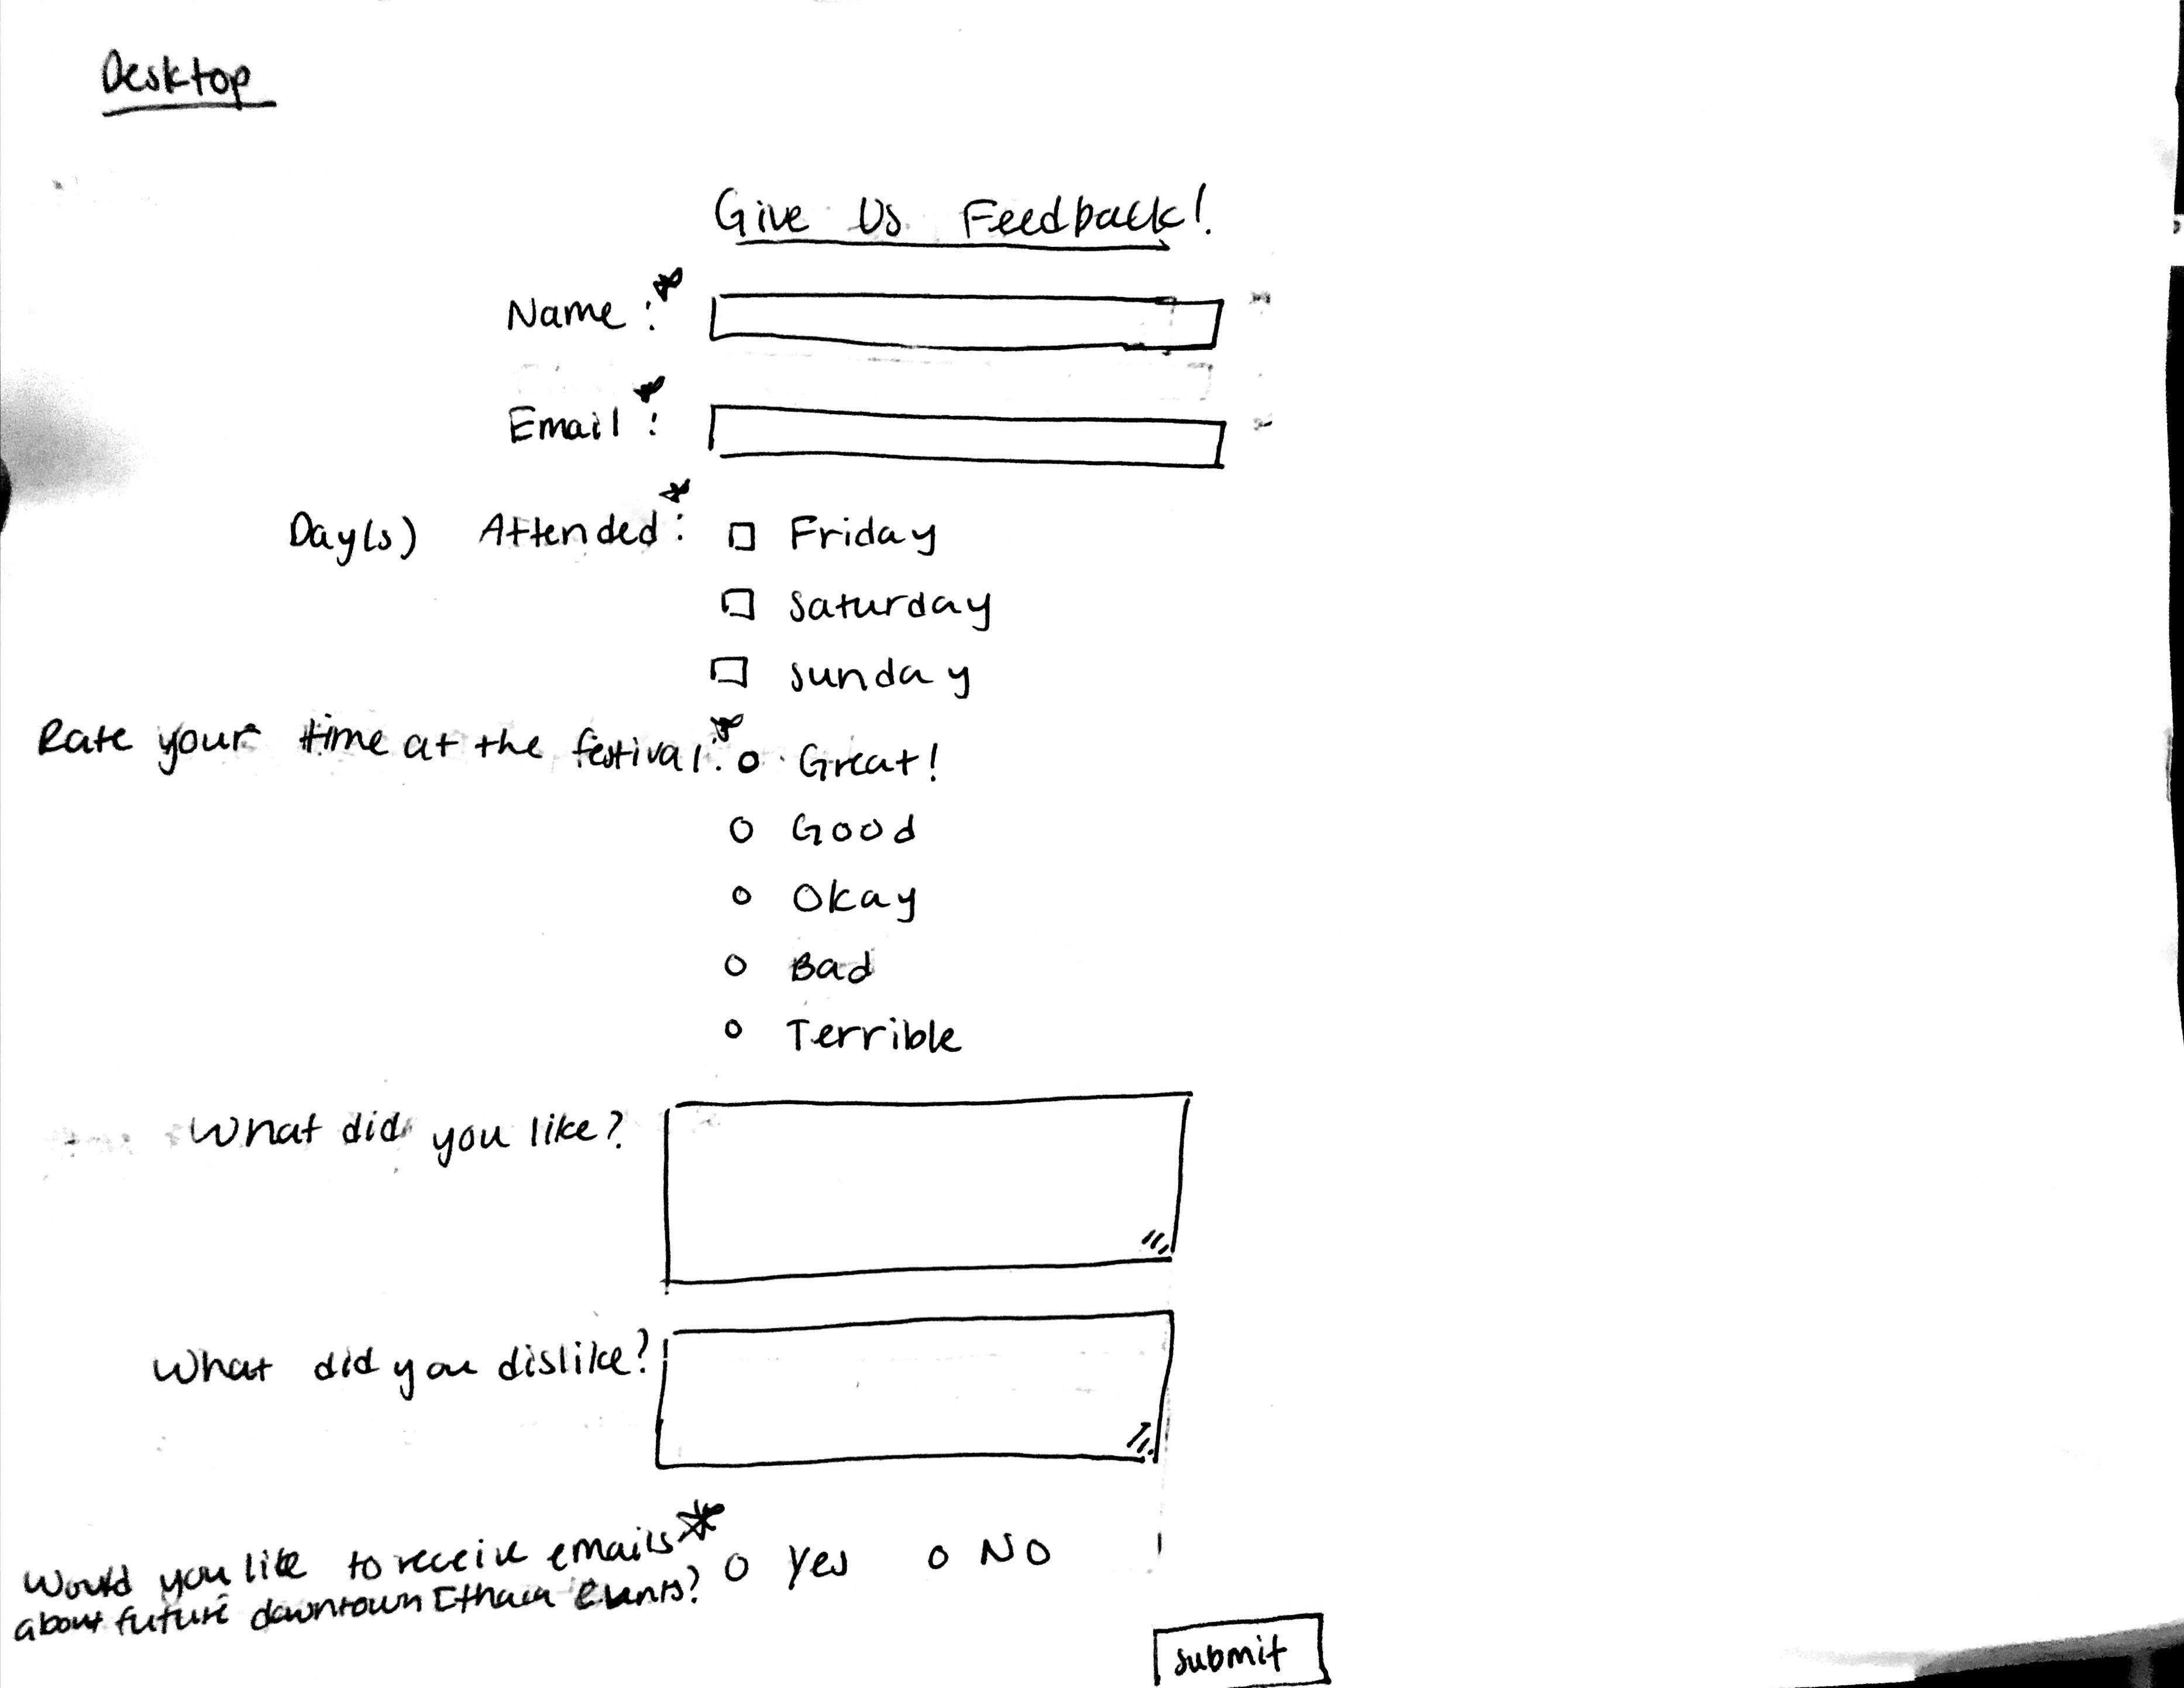 Desktop
Give Us Feedback!
Name:*
Email*:
Day(s) Attended*:
Friday
Saturday
Sunday
Rate your time at the festival:*
Great!
Good
Okay
Bad
Terrible
What did you like?
What did you dislike?
Would you like to receive emails*
about future downtown Ithaca events?
Yes
No
submit